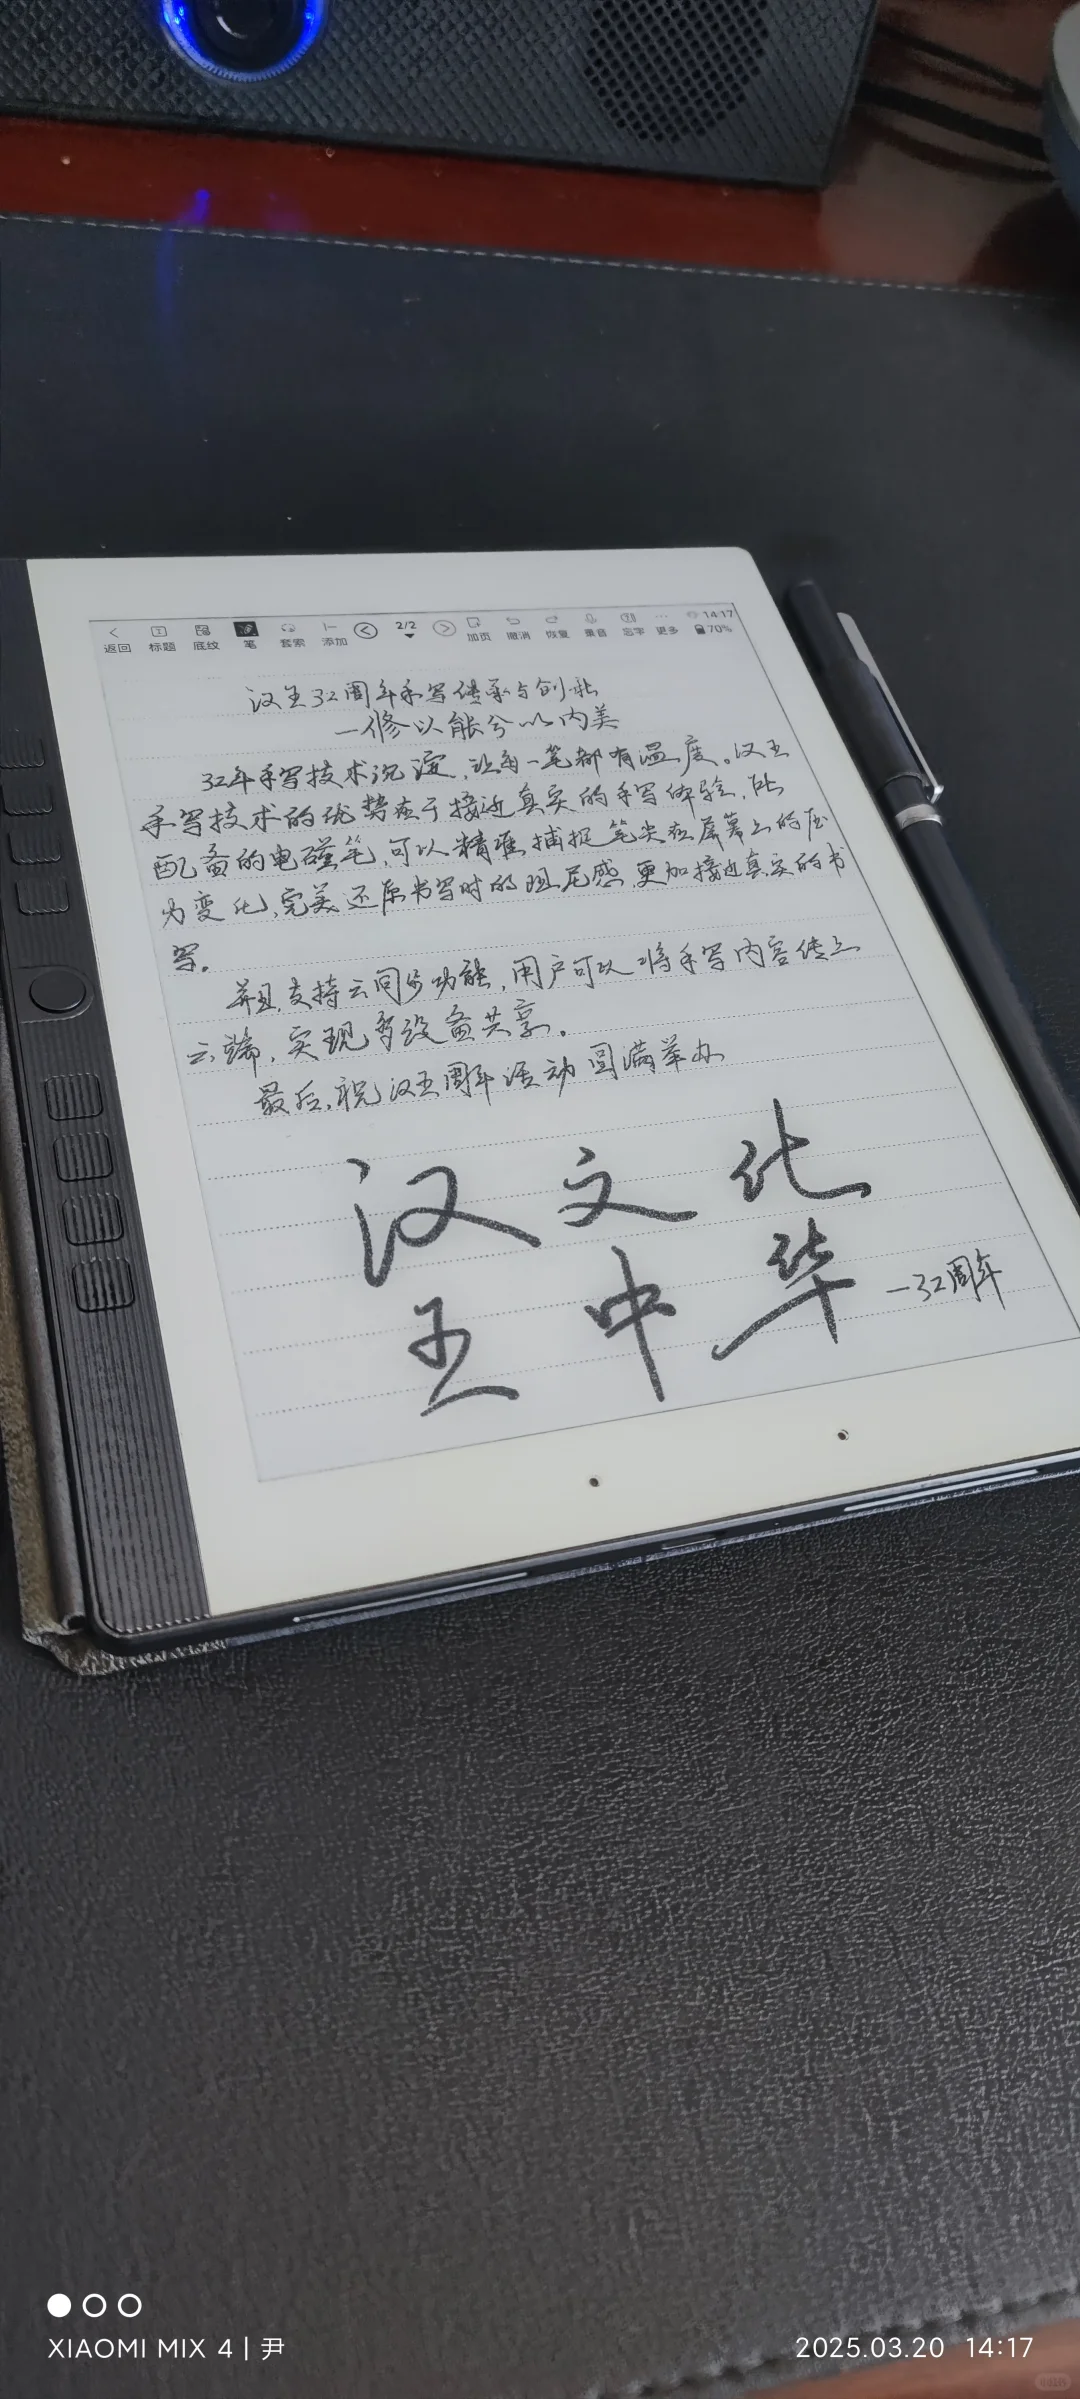 返回 标题 底纹 笔 套索 添加 2/2 加页 撤消 恢复 录音 忘字 更多 14:17 70%
汉王32周年手写传承与创新
一修以能兮以内美
32年手写技术沉淀,让每一笔都有温度。汉王
手写技术的优势在于接近真实的手写体验,所
配备的电磁笔,可以精准捕捉笔尖在屏幕上的压
力变化,完美还原书写时的阻尼感,更加接近真实的书
写。
并且,支持云同步功能,用户可以将手写内容传上
云端,实现多设备共享。
最后,祝汉王周年活动圆满举办
汉 文 化
王 中 华 —32周年
XIAOMI MIX 4 | 尹 2025.03.20 14:17